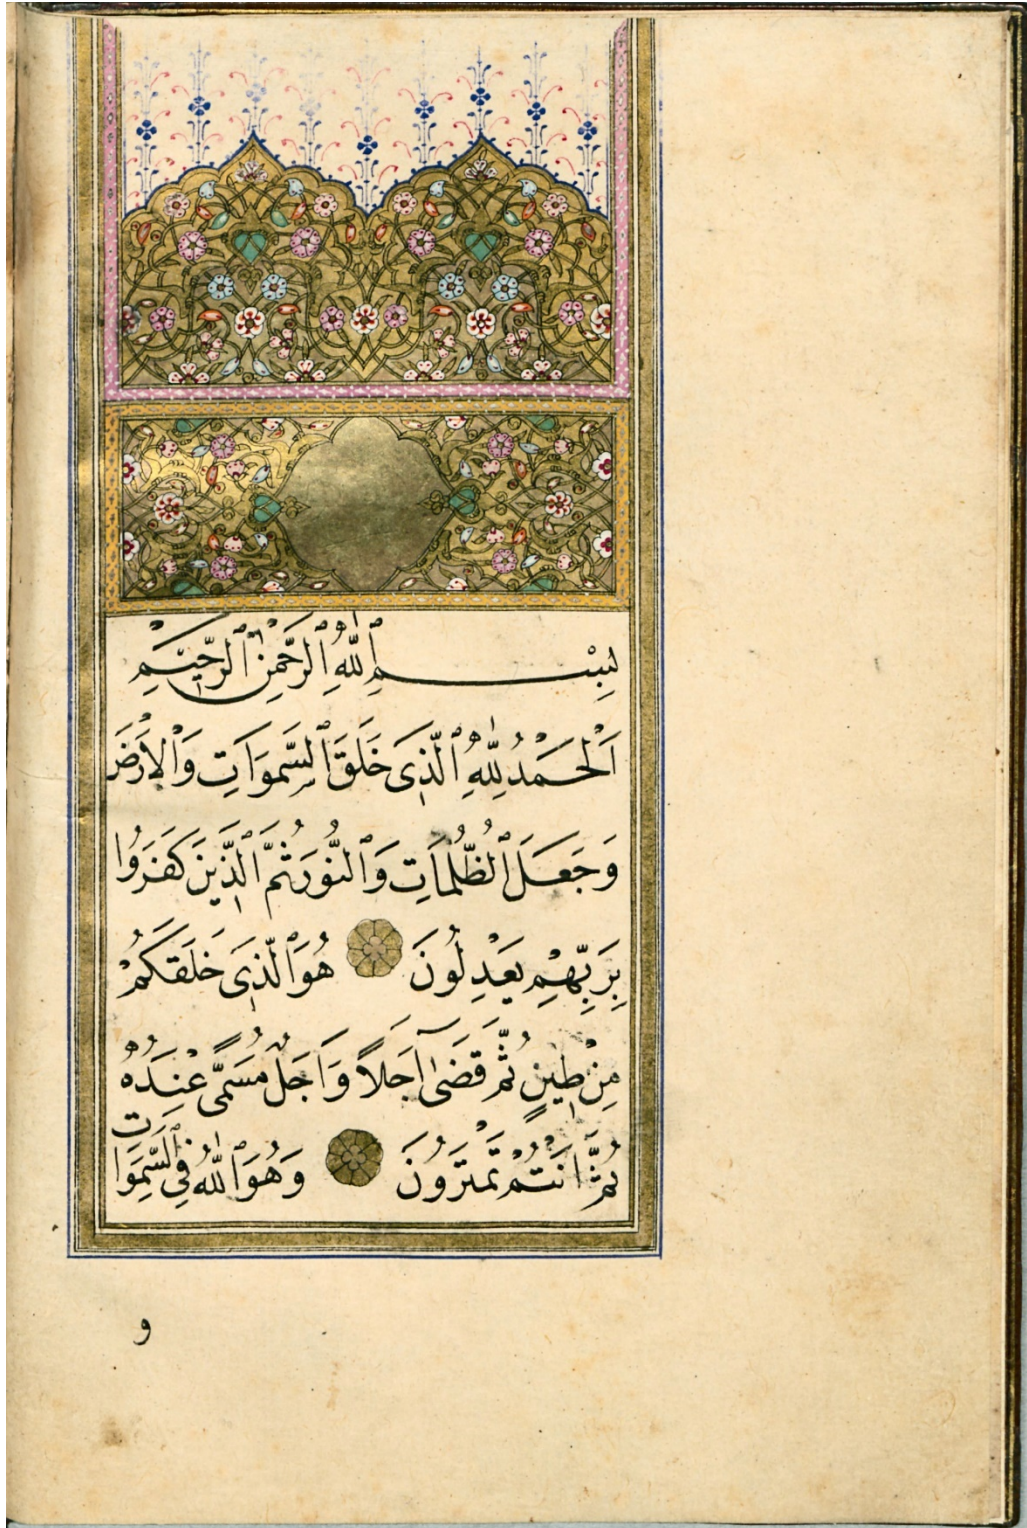 بِسْمِ ٱللّٰهِ ٱلرَّحْمٰنِ ٱلرَّحِيمِ
اَلْحَمْدُ لِلّٰهِ ٱلَّذِى خَلَقَ ٱلسَّمٰوَاتِ وَٱلْاَرْضَ
وَجَعَلَ ٱلظُّلُمَاتِ وَٱلنُّورَ ثُمَّ ٱلَّذِينَ كَفَرُوا
بِرَبِّهِمْ يَعْدِلُونَ هُوَ ٱلَّذِى خَلَقَكُمْ
مِنْ طِينٍ ثُمَّ قَضَىٰٓ اَجَلاً وَاَجَلٌ مُسَمًّى عِنْدَهُ
ثُمَّ اَنْتُمْ تَمْتَرُونَ وَهُوَ ٱللّٰهُ فِى ٱلسَّمٰوَاتِ
و